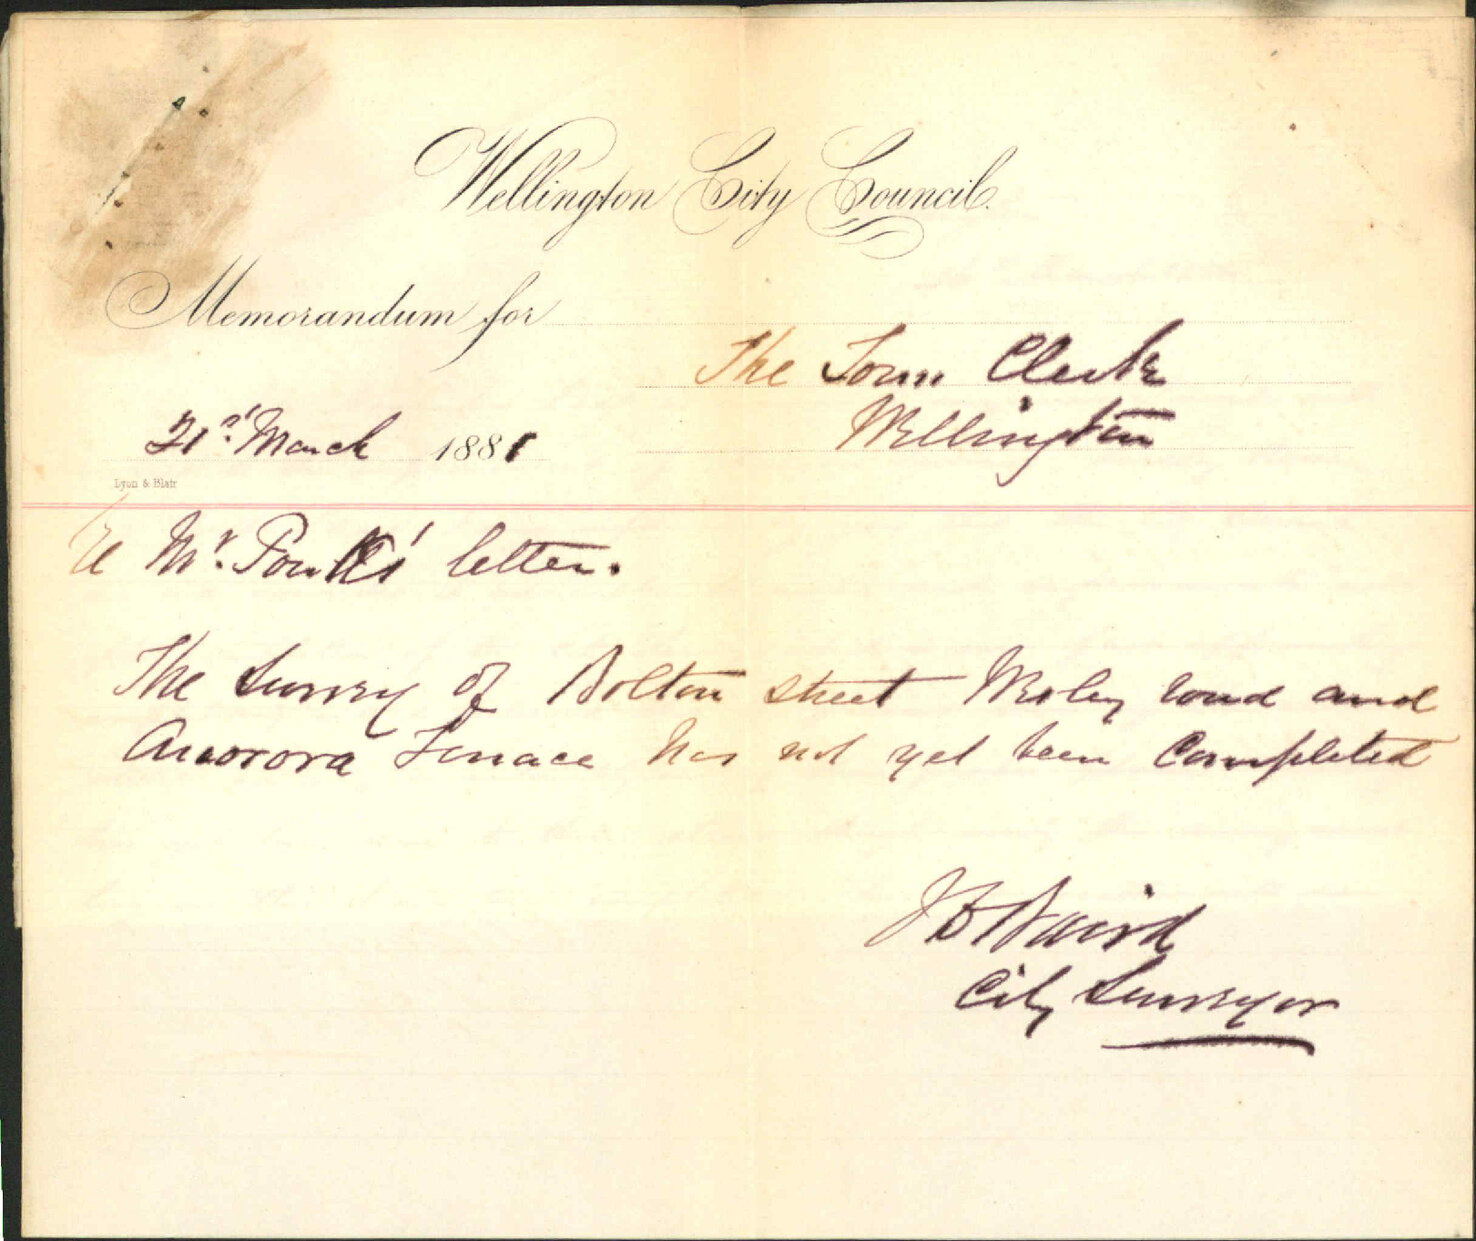 Wellington City Council.
Memorandum for
The Town Clerk
Wellington
21st March 1881
Lyon & Blair
re Mr. letter.
The Survey of Bolton street Wesley road and
Auorora Terrace has not yet been Completed
J B Baird
City Surveyor